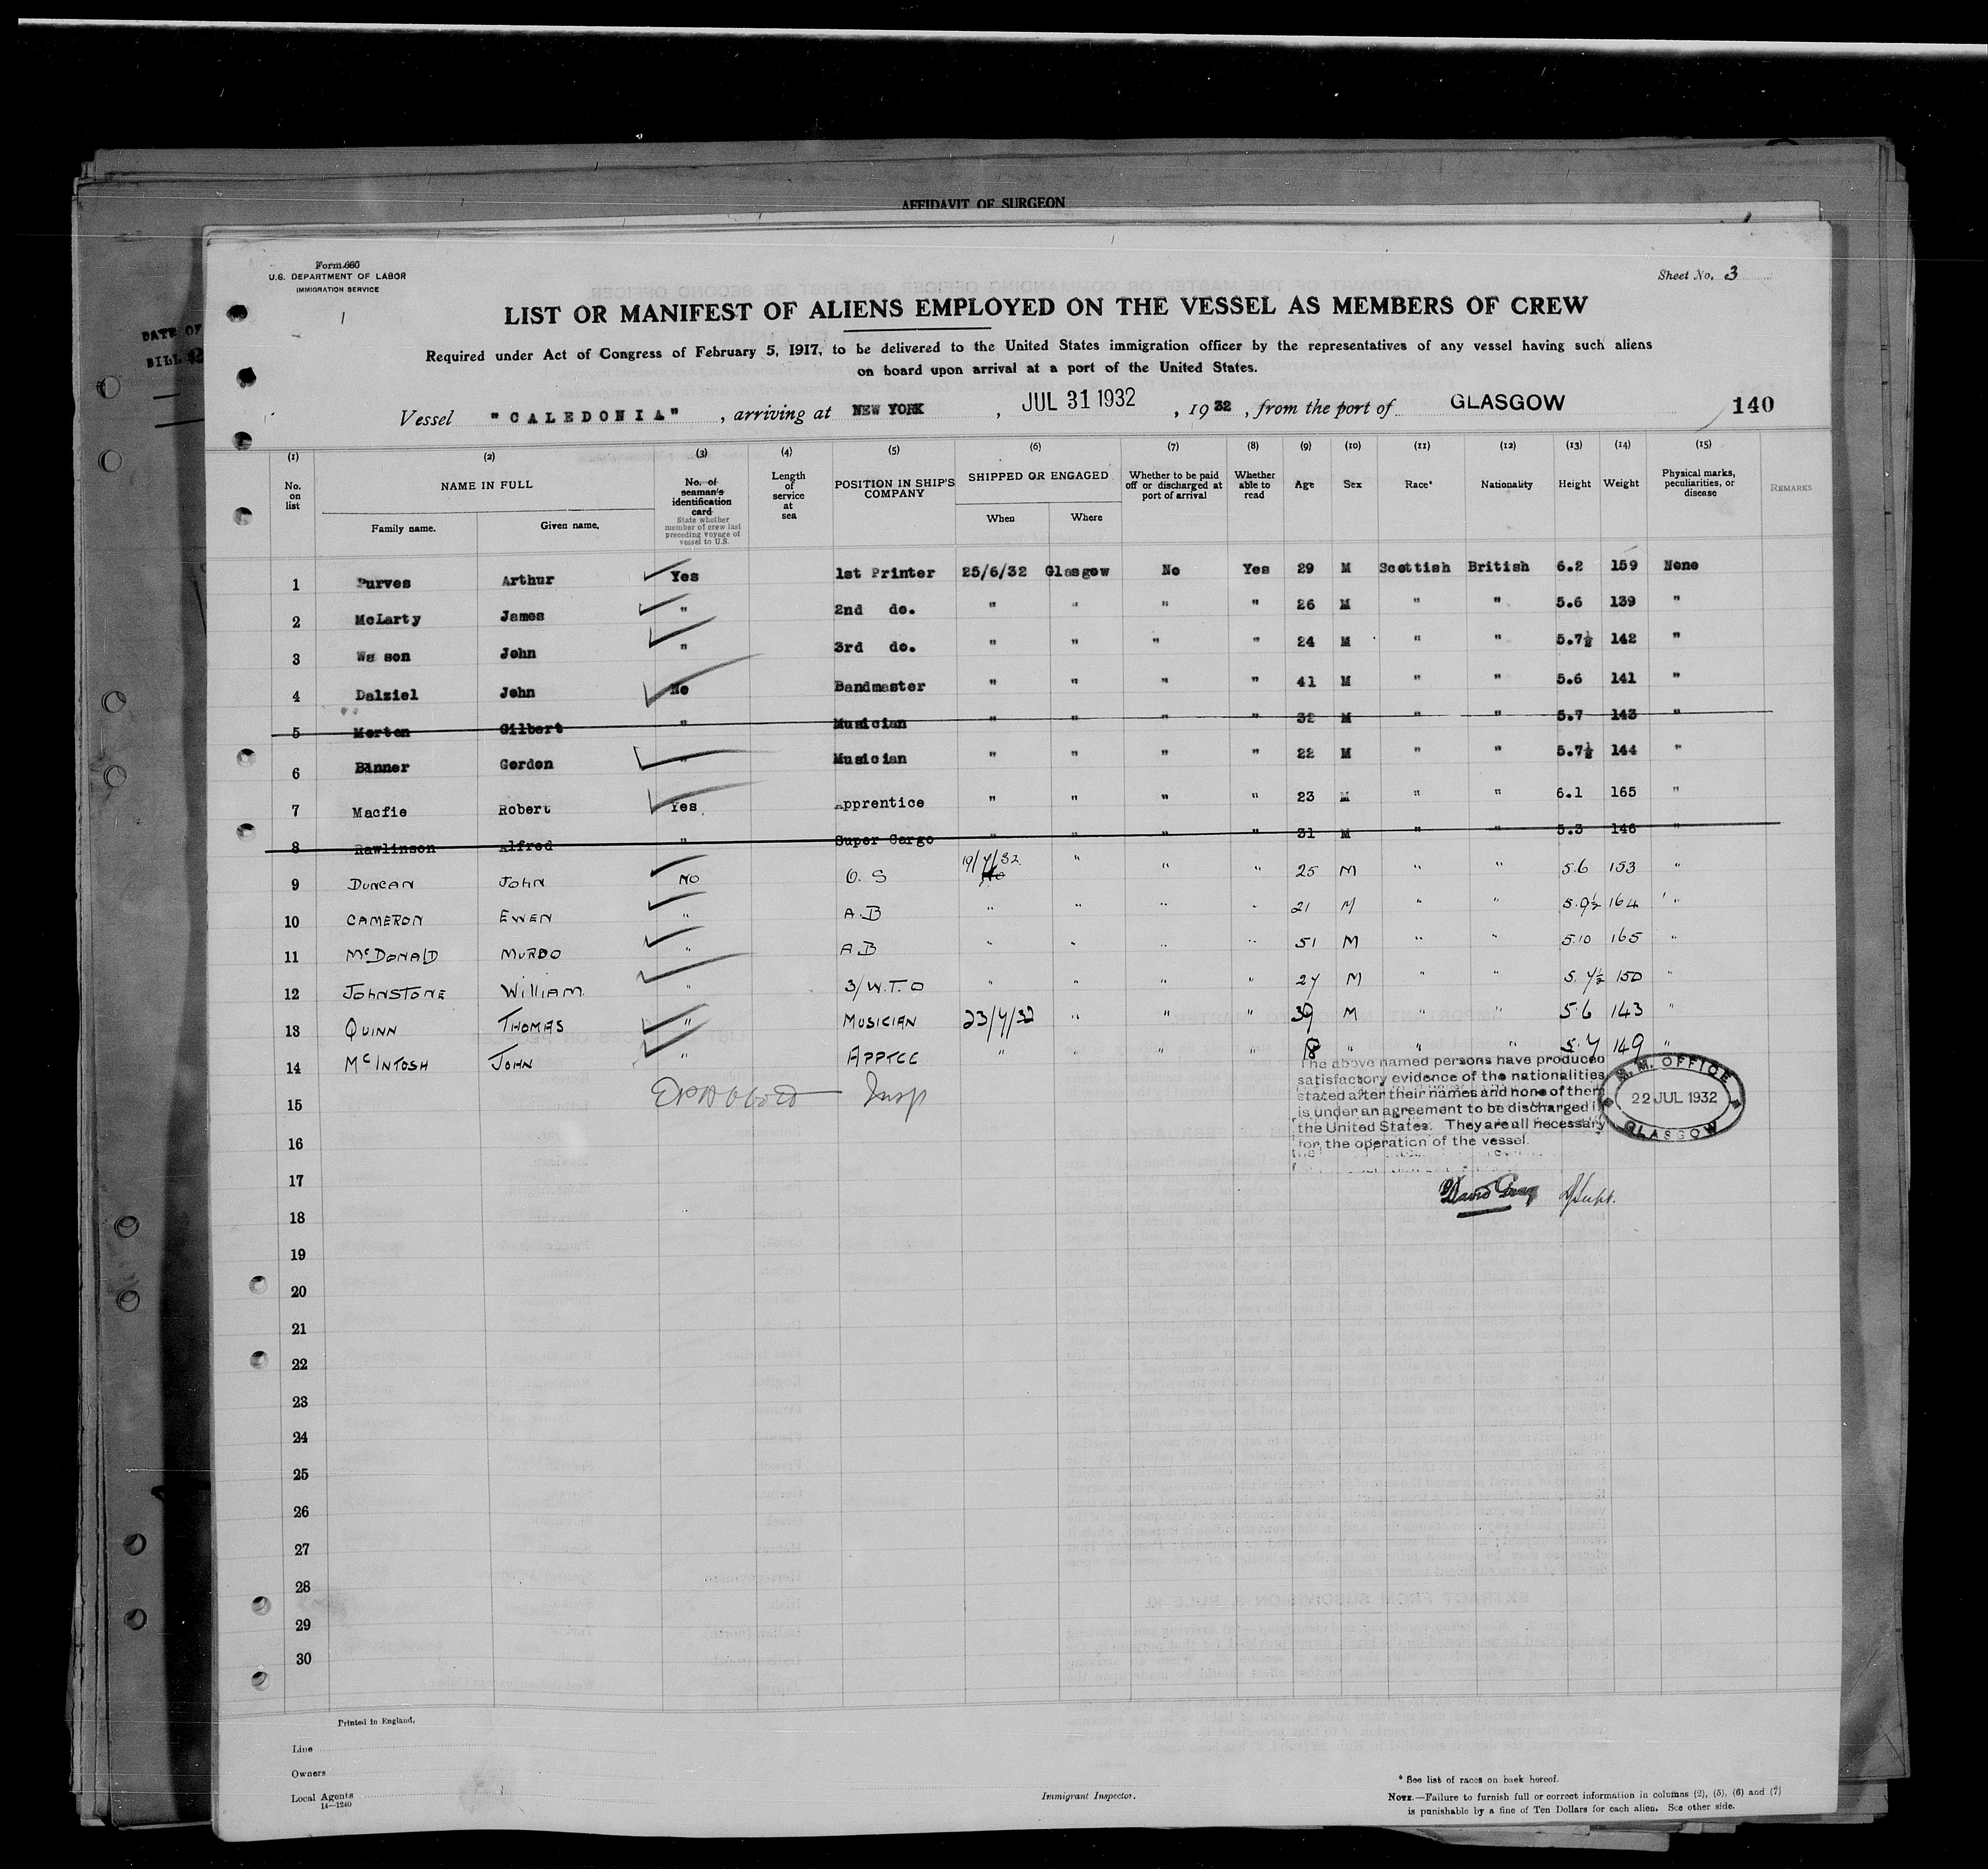 AFFIDAVIT OF SURGEON
DATE OF
BILL
Form 680
U.S. DEPARTMENT OF LABOR
IMMIGRATION SERVICE
Sheet No. 3
LIST OR MANIFEST OF ALIENS EMPLOYED ON THE VESSEL AS MEMBERS OF CREW
Required under Act of Congress of February 5, 1917, to be delivered to the United States immigration officer by the representatives of any vessel having such aliens
on board upon arrival at a port of the United States.
Vessel "CALEDONIA", arriving at NEW YORK, JUL 31 1932, 1932, from the port of GLASGOW 140
(1) (2) (3) (4) (5) (6) (7) (8) (9) (10) (11) (12) (13) (14) (15)
No. on list NAME IN FULL Family name. Given name. No. of seaman's identification card State whether member of crew last preceding voyage of vessel to U.S. Length of service at sea POSITION IN SHIP'S COMPANY SHIPPED OR ENGAGED When Where Whether to be paid off or discharged at port of arrival Whether able to read Age Sex Race* Nationality Height Weight Physical marks, peculiarities, or disease REMARKS
1 Purves Arthur Yes 1st Printer 25/6/32 Glasgow No Yes 29 M Scottish British 6.2 159 None
2 McLarty James " 2nd do. " " " " 26 M " " 5.6 139 "
3 Wa son John " 3rd do. " " " " 24 M " " 5.7½ 142 "
4 Dalziel John No Bandmaster " " " " 41 M " " 5.6 141 "
5 Morton Gilbert " Musician " " " " 32 M " " 5.7 143 "
6 Binner Gordon " Musician " " " " 22 M " " 5.7½ 144 "
7 Macfie Robert Yes Apprentice " " " " 23 M " " 6.1 165 "
8 Rawlinson Alfred " Super Cargo " " " " 31 M " " 5.3 146 "
9 DUNCAN JOHN NO O.S 19/7/32 " " " 25 M " " 5.6 153 "
10 CAMERON EWEN " A.B " " " " 21 M " " 5.9½ 164 "
11 McDONALD MURDO " A.B " " " " 51 M " " 5.10 165 "
12 JOHNSTONE WILLIAM " 3/W.T.O " " " " 27 M " " 5.7½ 150 "
13 QUINN THOMAS " MUSICIAN 23/7/32 " " " 39 M " " 5.6 143 "
14 McINTOSH JOHN " APPTCE " " " " 18 " " " 5.7 149 "
Insp
The above named persons have produced
satisfactory evidence of the nationalities
stated after their names and none of them
is under an agreement to be discharged in
the United States. They are all necessary
for the operation of the vessel.
M.M. OFFICE
22 JUL 1932
GLASGOW
David Gray D/Supt.
15
16
17
18
19
20
21
22
23
24
25
26
27
28
29
30
Printed in England.
Line
Owners
Local Agents
14—1240
Immigrant Inspector.
* See list of races on back hereof.
NOTE.—Failure to furnish full or correct information in columns (2), (5), (6) and (7)
is punishable by a fine of Ten Dollars for each alien. See other side.